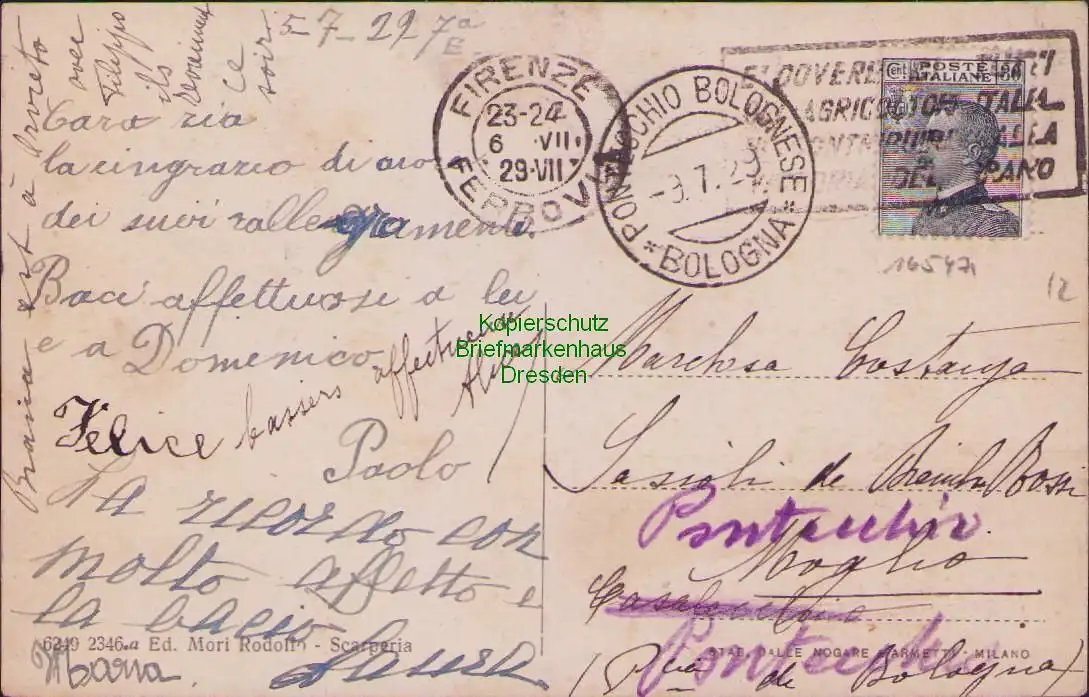 5-7-29 7ª
E.
FIRENZE
FERROVIA
23-24
6 VII
29·VII
PONTECCHIO BOLOGNESE
* BOLOGNA *
-9.7.29
E' DOVERE
AGRICOLTORI ITALIA
DEL GRANO
Cent POSTE ITALIANE 30
16547
12
est à Loreto
avec
Filippo
ils
ce
soir
Cara zia
la ringrazio di cuore
dei suoi rallegramenti.
Baci affettuosi a lei
e a Domenico
Paolo
Felice baisers affectueux
Alice
La ricordo con
molto affetto e
la bacio
Laura
Maria
Kopierschutz
Briefmarkenhaus
Dresden
Marchesa Costanza
de Rossi
Pontecchio
Moglio
Pontecchio
(Prov. de Bologna)
6249 2346.a Ed. Mori Rodolfo - Scarperia
STAB. DALLE NOGARE E ARMETTI - MILANO